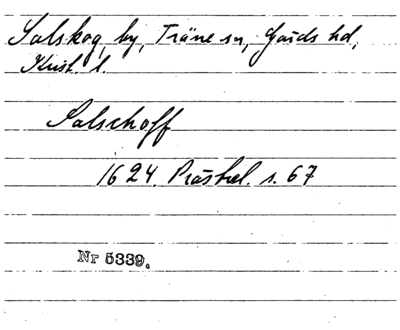 Salskog by, Träne sn, Gärds hd,
Krist. l.
Salschoff
1624. Prästrel. s. 67
Nr 5339.